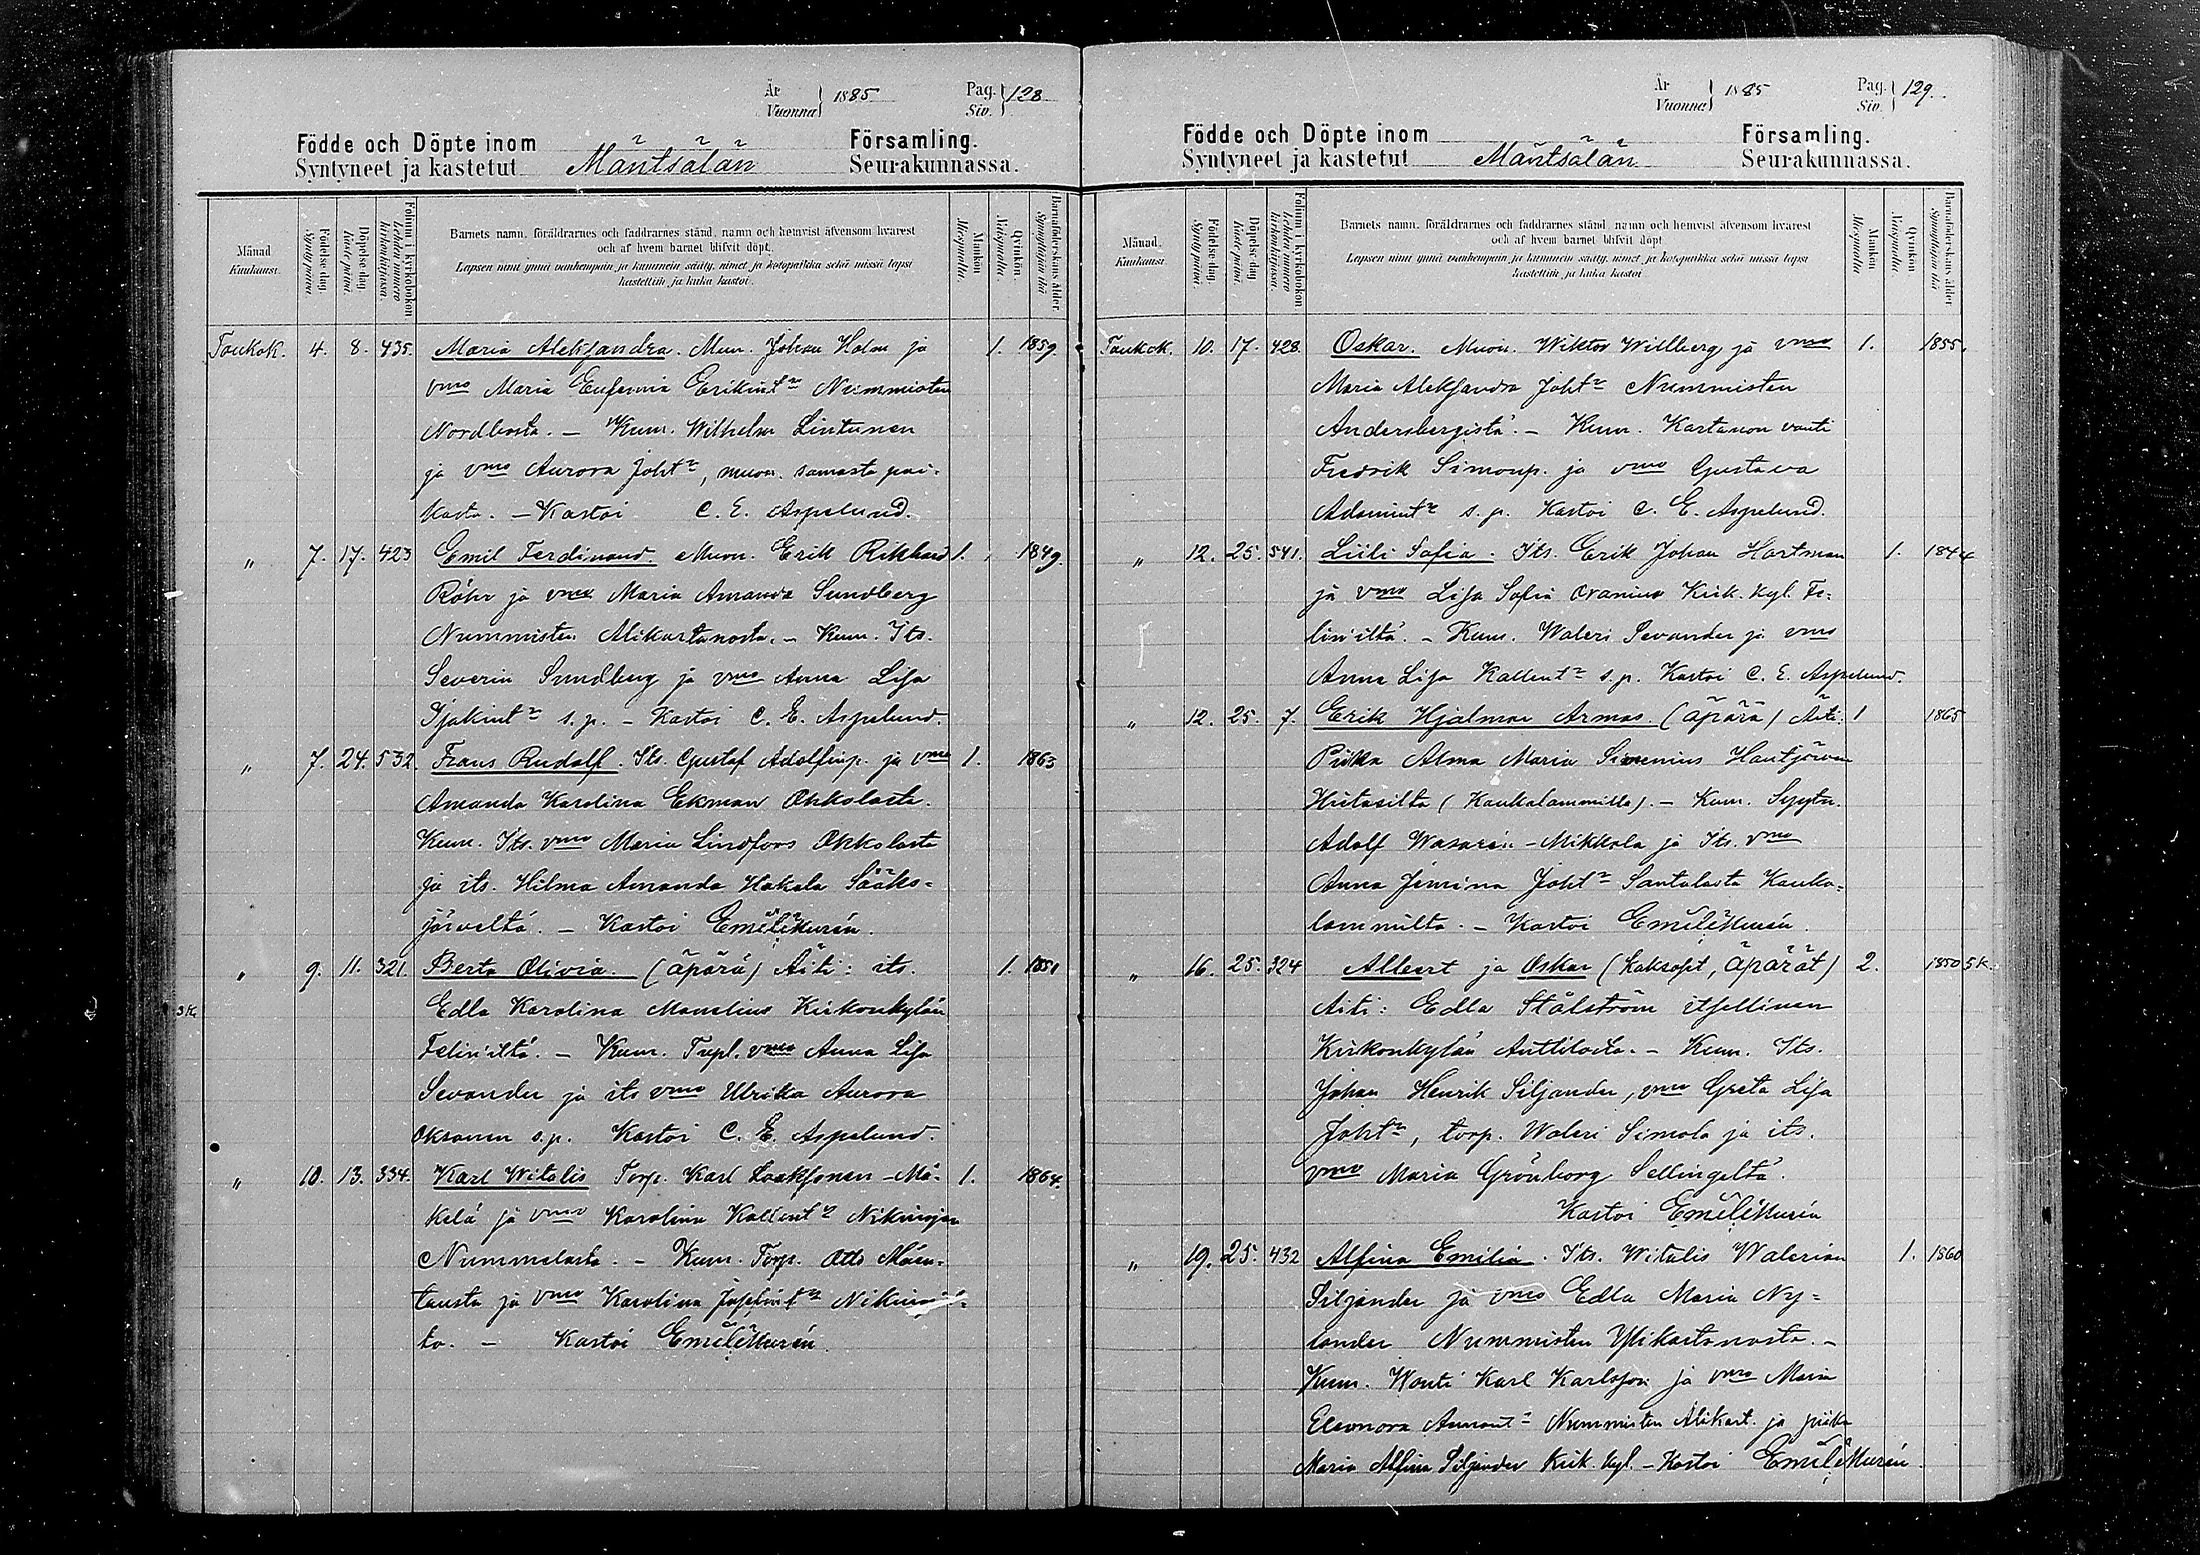 År
Vuonna} 1885
Pag.
Siv.} 128.
Födde och Döpte inom Församling.
Syntyneet ja kastetut Mäntsälän Seurakunnassa.
Månad. Kuukausi.
Födelse dag. Syntypäivä.
Döpelse dag. Kastepäivä.
Folium i kyrkoboken Lehden numero kirkonkirjassa.
Barnets namn, föräldrarnes och faddrarnes stånd, namn och hemvist äfvensom hvarest
och af hvem barnet blifvit döpt.
Lapsen nimi ynnä vanhempain ja kummein sääty, nimet ja kotopaikka sekä missä lapsi
kastettiin ja kuka kastoi.
Mankön Miespuolia.
Qvinkön Vaispuolia.
Barnaföderskans ålder. Synnyttäjän ikä
Toukok. 4. 8. 435. Maria Aleksandra. Muon. Johan Holm ja 1. 1859.
vmo Maria Eufemia Erikint:r Nummisten
Nordbosta. – Kum. Wilhelm Lintunen
ja vmo Aurora Joht:r, muon. samasta pai-
kasta. – Kastoi C. E. Aspelund.
" 7. 17. 423 Emil Ferdinand. Muon. Erik Rikhard 1. 1849.
Röhr ja vmo Maria Amanda Sundberg
Nummisten Alikartanosta. – Kum. Its.
Severin Sundberg ja vmo Anna Lisa
Isakint:r s.p. – Kastoi C. E. Aspelund.
" 7. 24. 532. Frans Rudolf. Its. Gustaf Adolfinp. ja vmo 1. 1863
Amanda Karolina Ekman Ohkolasta.
Kum. Its. vmo Maria Lindfors Ohkolasta
ja its. Hilma Amanda Hakala Sääks-
järveltä. – Kastoi Emil Murén.
" 9. 11. 321. Berta Olivia. (äpärä) Äiti: its. 1. 1851
3 K.
Edla Karolina Manelius Kirkonkylän
Felin'iltä. – Kum. Tupl. vmo Anna Lisa
Sevander ja its vmo Ulrika Aurora
Oksanen s.p. Kastoi C. E. Aspelund.
" 10. 13. 334. Karl Witalis Torp. Karl Isaksonen-Mä- 1. 1864.
kelä ja vmo Karolina Kallent:r Nikinojan
Nummelasta. – Kum. Torp. Otto Mäen-
tausta ja vmo Karolina Josefint:r Nikinojal-
ta. – Kastoi Emil Murén
År
Vuonna} 1885
Pag.
Siv.} 129.
Födde och Döpte inom Församling.
Syntyneet ja kastetut Mäntsälän Seurakunnassa.
Månad. Kuukausi.
Födelse dag. Syntypäivä.
Döpelse dag. Kastepäivä.
Folium i kyrkoboken Lehden numero kirkonkirjassa.
Barnets namn, föräldrarnes och faddrarnes stånd, namn och hemvist äfvensom hvarest
och af hvem barnet blifvit döpt.
Lapsen nimi ynnä vanhempain ja kummein sääty, nimet ja kotopaikka sekä missä lapsi
kastettiin ja kuka kastoi
Mankön Miespuolia
Qvinkön Vaispuolia.
Barnaföderskans ålder. Synnyttäjän ikä
Toukok. 10. 17. 428. Oskar. Muon. Wiktor Willberg ja vmo 1. 1855.
Maria Aleksandra Joht:r Nummisten
Andersbergistä. – Kum. Kartanon vouti
Fredrik Simonp. ja vmo Gustava
Adamint:r s. p. Kastoi C. E. Aspelund.
" 12. 25. 541. Liili Sofia. Its. Erik Johan Hartman 1. 1844
ja vmo Lisa Sofia Oranius Kirk. kyl. Fe-
lin'iltä. – Kum. Waleri Sevander ja vmo
Anna Lisa Kallent:r s.p. Kastoi C. E. Aspelund.
" 12. 25. 7. Erik Hjalmar Armas. (äpärä) Äiti: 1 1865
Piika Alma Maria Simenius Hautjärven
Hiitasilta (Kaukalammilla). – Kum. Syytn.
Adolf Wasarén-Mikkola ja Its. vmo
Anna Joht:r Santalasta Kauka-
lammilta. – Kastoi Emil Murén.
" 16. 25. 324 Albert ja Oskar (kaksoset, äpärät) 2. 1850 5 K.
Äiti: Edla Stålström itsellinen
Kirkonkylän Anttilasta. – Kum. Its.
Johan Henrik Siljander, vmo Greta Lisa
Joht:r, torp. Waleri Simola ja its.
vmo Maria Grönborg Sellingeltä.
Kastoi Emil Murén
" 19. 25. 432 Alfina Emilia. Its. Witalis Walerian 1. 1860
Siljander ja vmo Edla Maria Ny-
lander Nummisten Ylikartanosta. –
Kum. Wouti Karl Karlsson ja vmo Maria
Eleonora Nummisten Alikart. ja piika
Maria Alfina Siljander Kirk. kyl. – Kastoi Emil Murén.